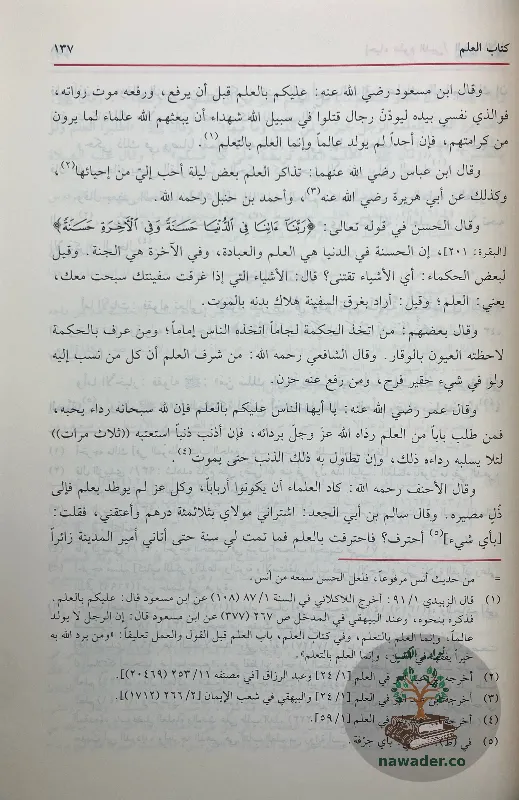 كتاب العلم
١٣٧
وقال ابن مسعود رضي الله عنه: عليكم بالعلم قبل أن يرفع، ورفعه موت رواته،
فوالذي نفسي بيده ليودّنّ رجال قتلوا في سبيل الله شهداء أن يبعثهم الله علماء لما يرون
من كرامتهم، فإن أحداً لم يولد عالماً وإنما العلم بالتعلم(١).
وقال ابن عباس رضي الله عنهما: تذاكر العلم بعض ليلة أحب إليّ من إحيائها(٢)،
وكذلك عن أبي هريرة رضي الله عنه(٣)، وأحمد بن حنبل رحمه الله.
وقال الحسن في قوله تعالى: ﴿رَبَّنَآ ءَاتِنَا فِى ٱلدُّنْيَا حَسَنَةً وَفِى ٱلْأَخِرَةِ حَسَنَةً﴾
[البقرة: ٢٠١]، إن الحسنة في الدنيا هي العلم والعبادة، وفي الآخرة هي الجنة. وقيل
لبعض الحكماء: أي الأشياء تقتنى؟ قال: الأشياء التي إذا غرقت سفينتك سبحت معك،
يعني: العلم؛ وقيل: أراد بغرق السفينة هلاك بدنه بالموت.
وقال بعضهم: من اتخذ الحكمة لجاماً اتخذه الناس إماماً؛ ومن عرف بالحكمة
لاحظته العيون بالوقار. وقال الشافعي رحمه الله: من شرف العلم أن كل من نسب إليه
ولو في شيء حقير فرح، ومن رفع عنه حزن.
وقال عمر رضي الله عنه: يا أيها الناس عليكم بالعلم فإن لله سبحانه رداء يحبه،
فمن طلب باباً من العلم رداه الله عزّ وجلّ بردائه، فإن أذنب ذنباً استعتبه ((ثلاث مرات))
لئلا يسلبه رداءه ذلك، وإن تطاول به ذلك الذنب حتى يموت(٤).
وقال الأحنف رحمه الله: كاد العلماء أن يكونوا أرباباً، وكل عز لم يوطد بعلم فإلى
ذُلٍ مصيره. وقال سالم بن أبي الجعد: اشتراني مولاي بثلاثمئة درهم وأعتقني، فقلت:
[بأي شيء](٥) أحترف؟ فاحترفت بالعلم فما تمت لي سنة حتى أتاني أمير المدينة زائراً
= من حديث أنس مرفوعاً، فلعل الحسن سمعه من أنس.
(١) قال الزبيدي ٩١/١: أخرج اللالكائي في السنة ٨٧/١ (١٠٨) عن ابن مسعود قال: عليكم بالعلم.
فذكره بنحوه، وعند البيهقي في المدخل ص ٢٦٧ (٣٧٧) عن ابن مسعود قال: فإن الرجل لا يولد
عالماً، وإنما العلم بالتعلم، وفي كتاب العلم، باب العلم قبل القول والعمل تعليقاً: «ومن يرد الله به
خيراً يفقهه في الدين، وإنما العلم بالتعلم».
(٢) في العلم [٢٤/١] وعبد الرزاق [في مصنفه ٢٥٣/١١ (٢٠٤٦٩)].
(٣) في العلم [٢٤/١]، والبيهقي في شعب الإيمان [٢٦٦/٢ (١٧١٢)].
(٤) في العلم [٥٩/١].
(٥) في بأي حرفة.
nawader.co